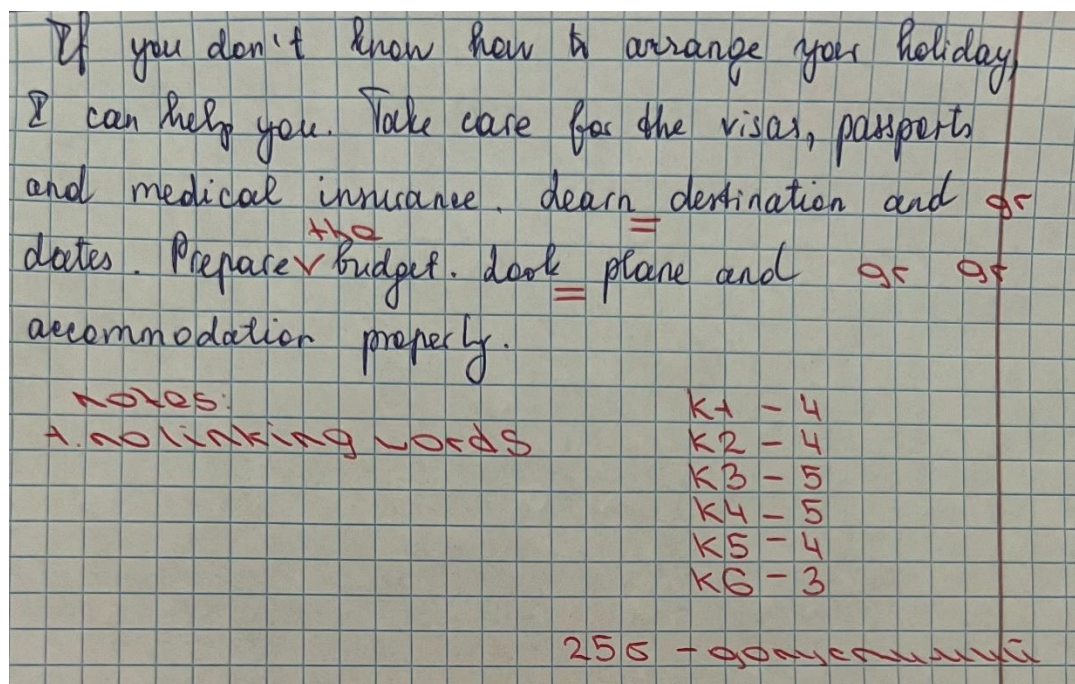 If you don't know how to arrange your holiday,
I can help you. Take care for the visas, passports
and medical insurance. Learn destination and gr
the
dates. Prepare budget. Look plane and gr gr
accommodation properly.
Notes:
1. no linking words
K1 - 4
K2 - 4
K3 - 5
K4 - 5
K5 - 4
K6 - 3
25б - допустимый